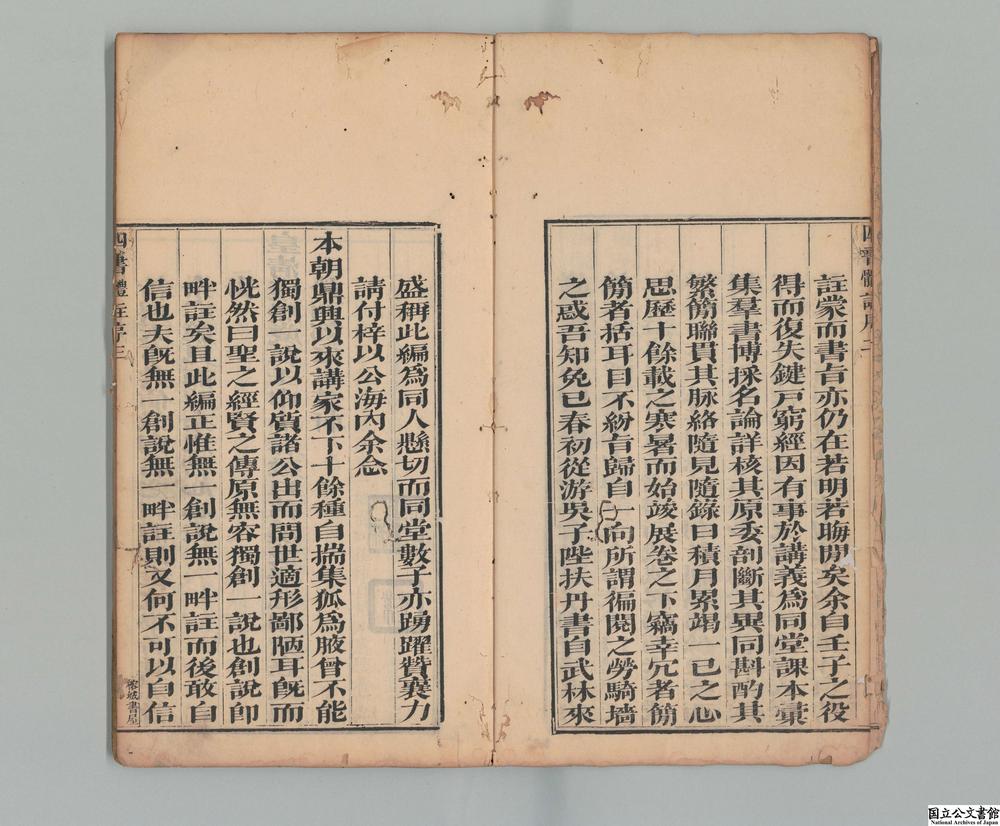 註蒙而書旨亦仍在若明若晦閒矣余自壬子之役
得而復失鍵戸窮經因有事於講義為同堂課本彚
集羣書博採名論詳核其原委剖斷其異同斟酌其
繁簡聯貫其脉絡隨見隨錄日積月累竭一已之心
思歷十餘載之寒暑而始竣展卷之下竊幸冗者簡
簡者括耳目不紛旨歸自一向所謂徧閱之勞騎墻
之惑吾知免已春初從游吳子陛扶丹書自武林來
盛稱此編為同人懸切而同堂數子亦踴躍贊襄力
請付梓以公海內余念
本朝鼎興以來講家不下十餘種自揣集狐為腋曾不能
獨創一說以仰質諸公出而問世適形鄙陋耳旣而
恍然曰聖之經賢之傳原無容獨創一說也創說卽
畔註矣且此編正惟無一創說無一畔註而後敢自
信也夫旣無一創說無一畔註則又何不可以自信
四書體註序三
書屋
国立公文書館
National Archives of Japan